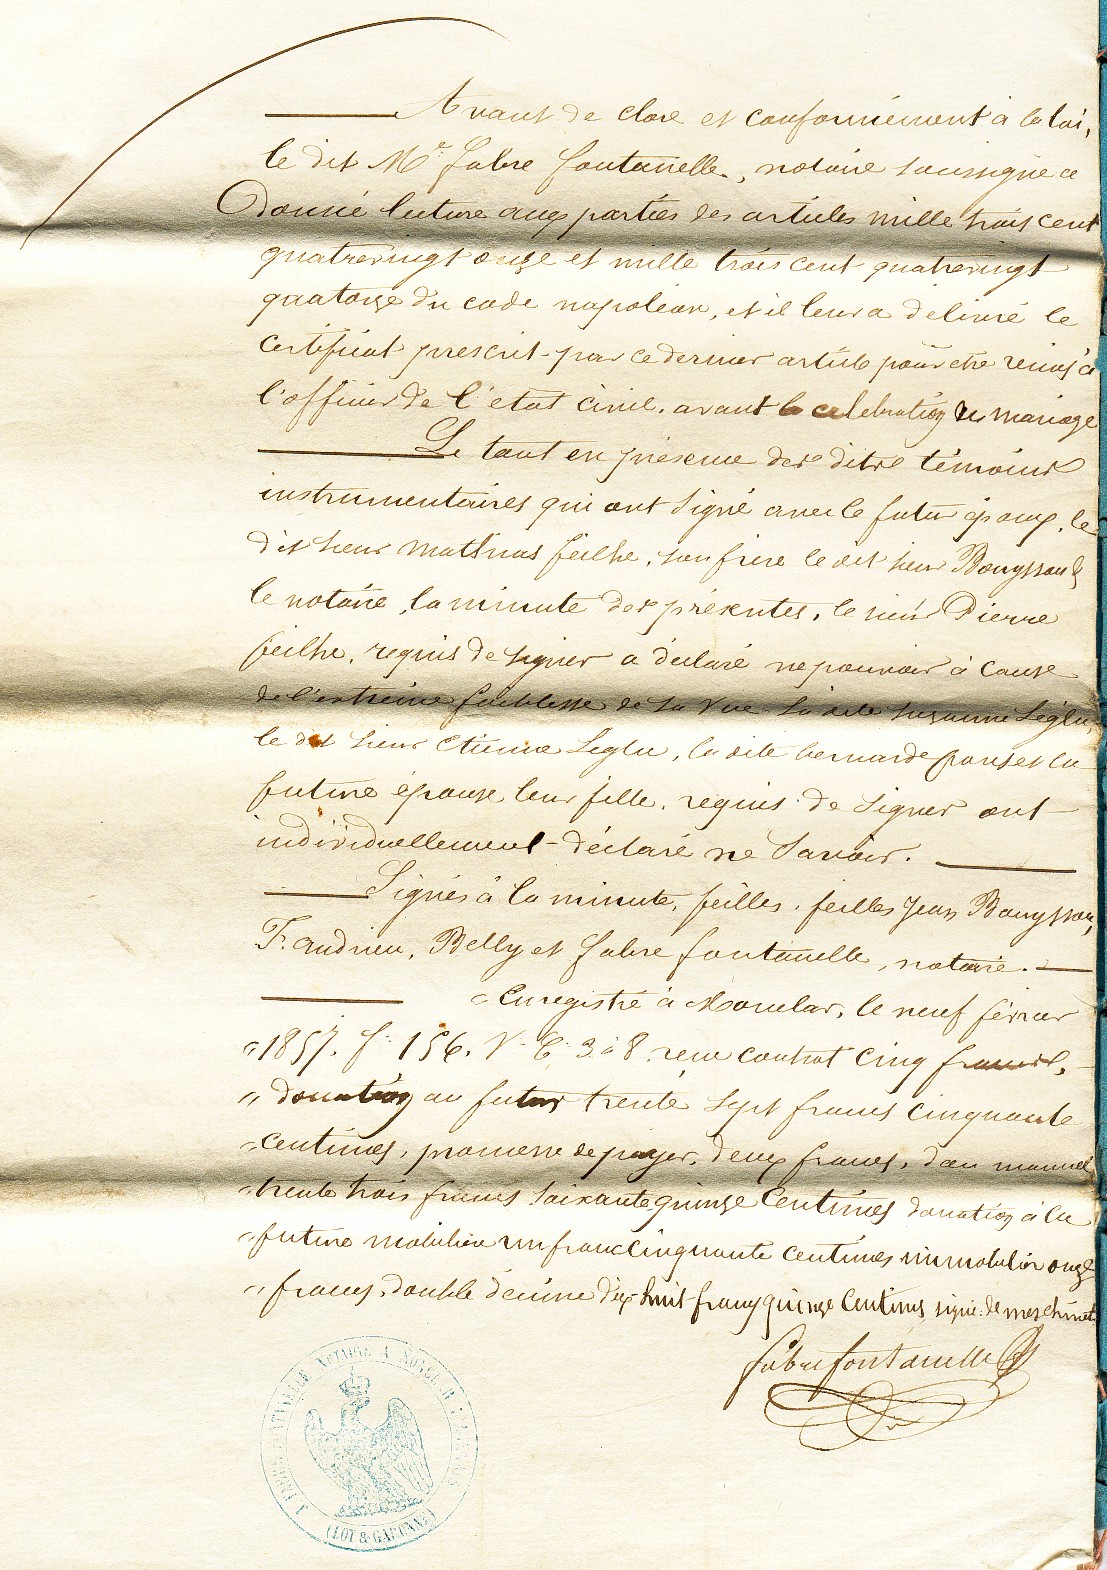 Avant de clore et conformément à la loi,
le dit Me. Fabre Fontanelle, notaire soussigné a
Donné lecture aux parties des articles mille trois cent
quatrevingt onze et mille trois cent quatrevingt
quatorze du code napoléon, et il leur a délivré le
certificat prescrit par ce dernier article pour etre remis à
l'officier de l'état civil, avant la célébration du mariage
Le tout en présence des dits témoins
instrumentaires qui ont signé avec le futur époux, le
dit sieur Mathias feilhe, son frère le dit sieur Bouyssou &
le notaire, la minute des présentes, le sieur Pierre
feilhe, requis de signer a déclaré ne pouvoir à cause
de l'extrème faiblesse de sa vue la dite Suzanne Séglu,
le dit sieur Etienne Seglu, la dite bernarde pons et la
future épouse leur fille, requis de signer ont
individuellement déclaré ne Savoir.
Signés à la minute, feilles, feilles Jean Bouyssou,
F. andrieu, Belly et fabre fontanelle, notaire.
Enregistré à Monclar, le neuf février
" 1857, f: 156. V. C: 3 à 8 reçu contrat cinq francs,
" donation au futur trente sept francs cinquante
" centimes, promesse de payer, deux francs, don manuel
" trente trois francs soixante quinze Centimes donation à la
" future mobilière un franc cinquante centimes immobilière onze
" francs, double décime dix huit francs quinze Centimes signé:
fabre fontanelle
NOTAIRE A
(LOT & GARONNE)